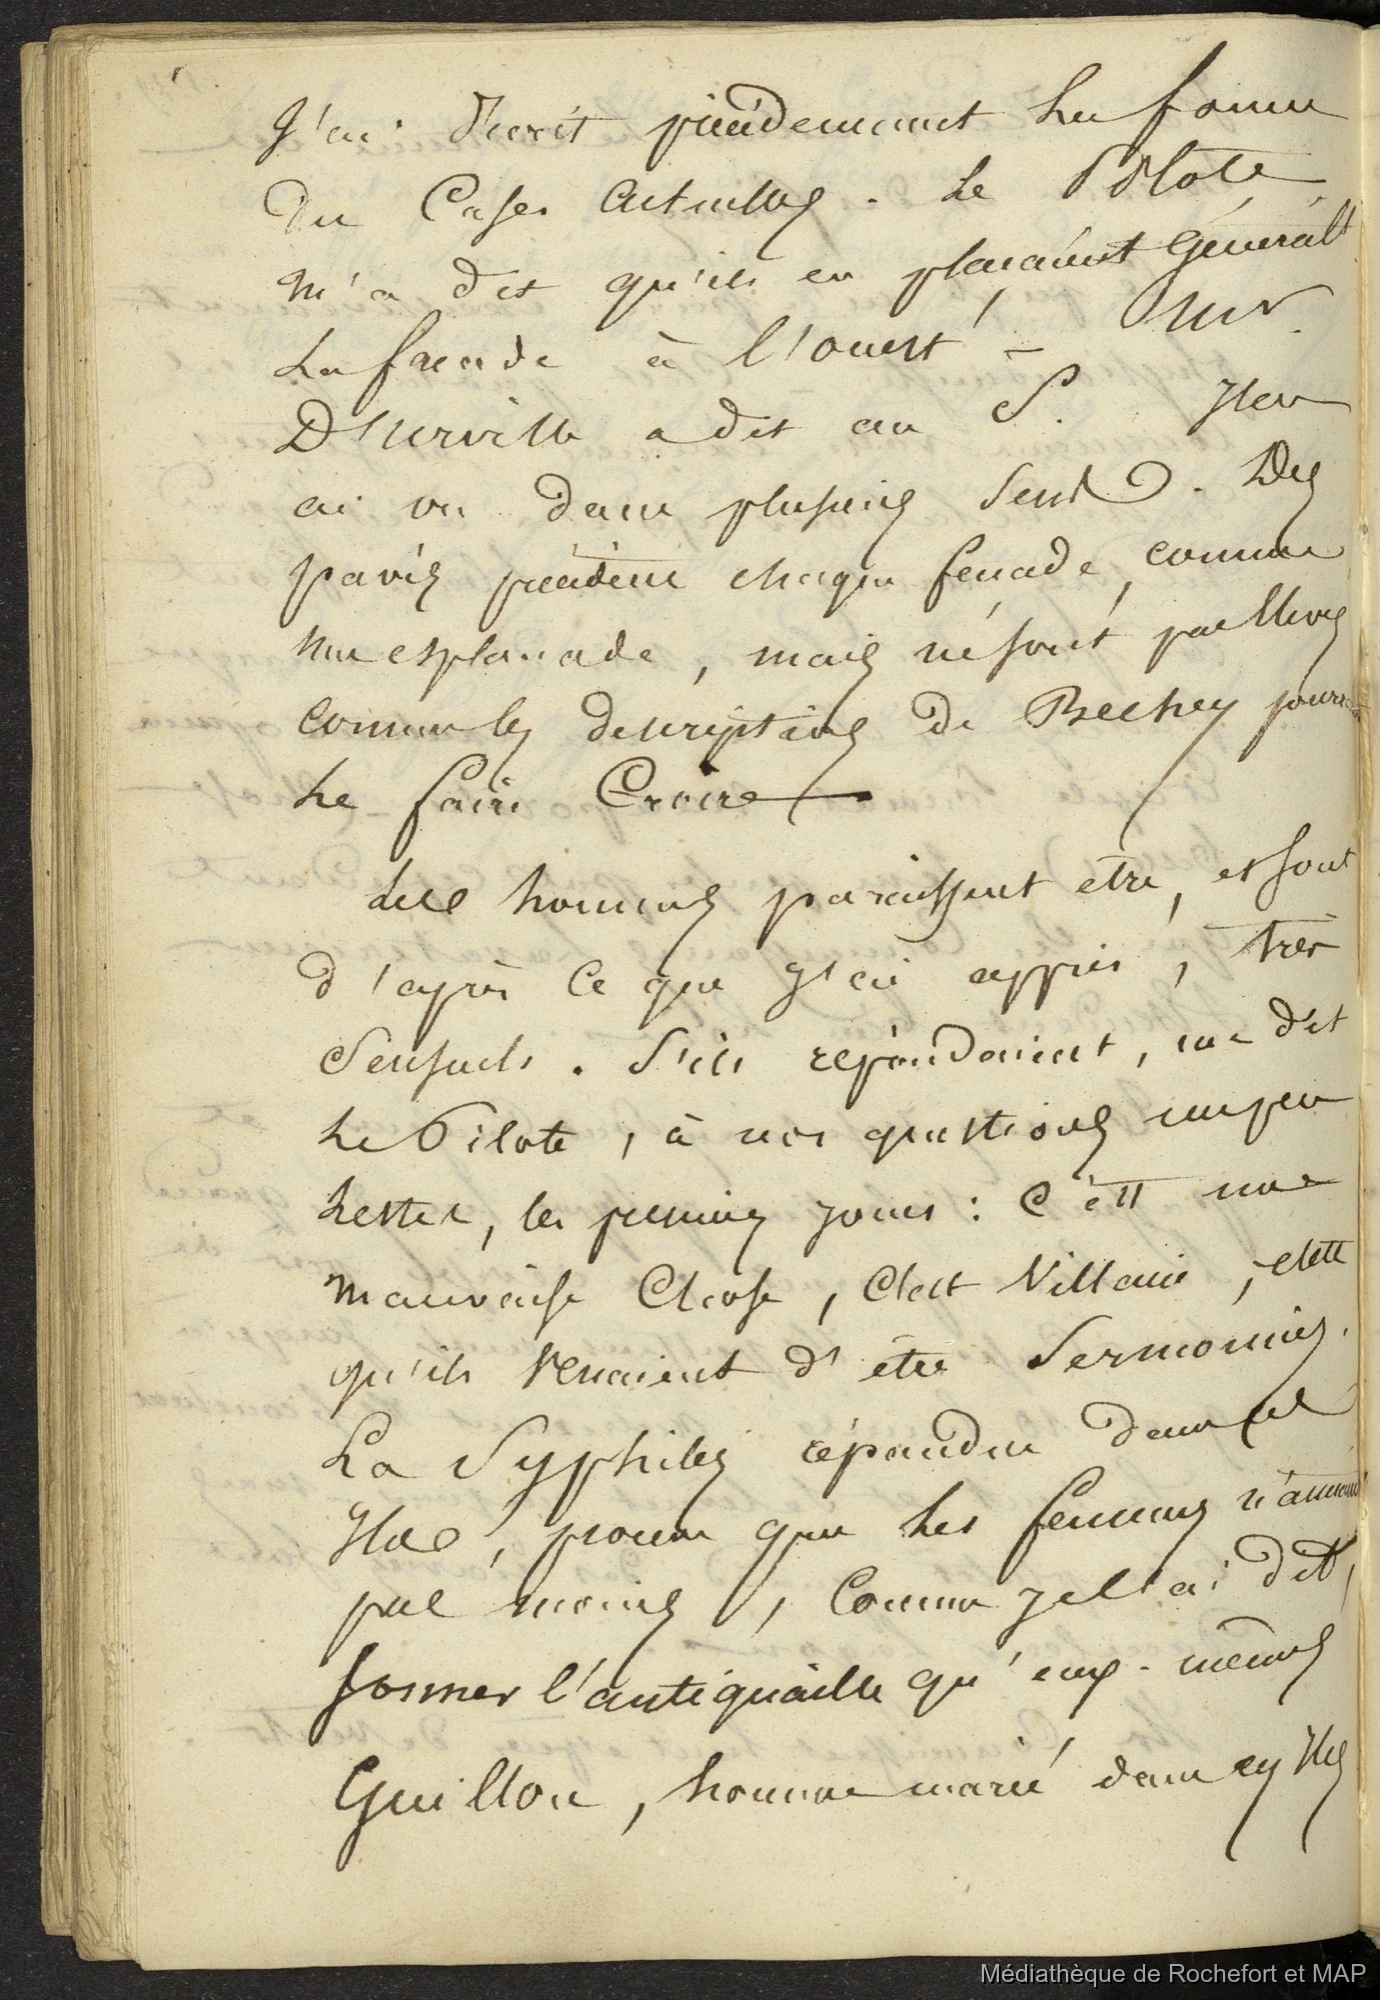 J'ai décrit précédemment la forme
des Cases actuelles. Le Pilote
m'a dit qu'ils en plaçaient Généralt
la façade à l'ouest -
D'Urville a dit au S. J'en
ai vu dans plusieurs sens. Des
pavés précèdent chaque façade, comme
une esplanade, mais ne sont pas élevés
comme les descriptions de Beechey pourraient
le faire Croire
Les hommes paraissent etre, et sont
d'après Ce que J'ai appris, très
Sensuels. S'ils répondaient, me dit
le Pilote, à nos questions un peu
lestes, les premiers jours : C'est une
mauvaise Chose, C'est Villain,
qu'ils Venaient d'être Sermonnés.
La Syphilis répandue dans ces
Iles, prouve que les femmes n'aiment
pas moins, Comme je l'ai dit,
former l'antiquaille qu'eux-mêmes
Guillou, homme marié dans ces Iles
Médiathèque de Rochefort et MAP